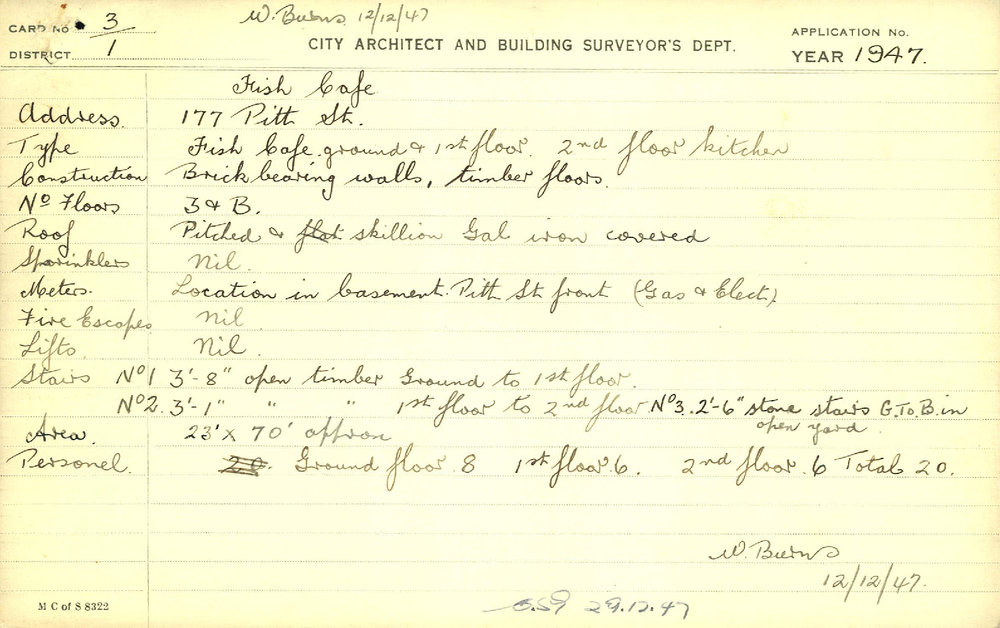 CARD No 3 W. Burns 12/12/47 APPLICATION No.
DISTRICT 1 CITY ARCHITECT AND BUILDING SURVEYOR'S DEPT. YEAR 1947.
Fish Cafe
Address. 177 Pitt St.
Type Fish Cafe. ground & 1st floor. 2nd floor kitchen
Construction Brick bearing walls, timber floors.
No Floors 3 & B.
Roof Pitched & flat skillion Gal iron covered
Sprinklers Nil.
Meters. Location in basement. Pitt St front (Gas & Elect).
Fire Escapes Nil
Lifts. Nil.
Stairs No 1 3'-8" open timber Ground to 1st floor.
No 2. 3'-1" " " 1st floor to 2nd floor No 3. 2'-6" stone stairs G. To. B. in
open yard.
Area. 23' x 70' approx
Personel. 20. Ground floor. 8 1st floor 6. 2nd floor. 6 Total 20.
W. Burns
12/12/47.
M C of S 8322 29.12.47